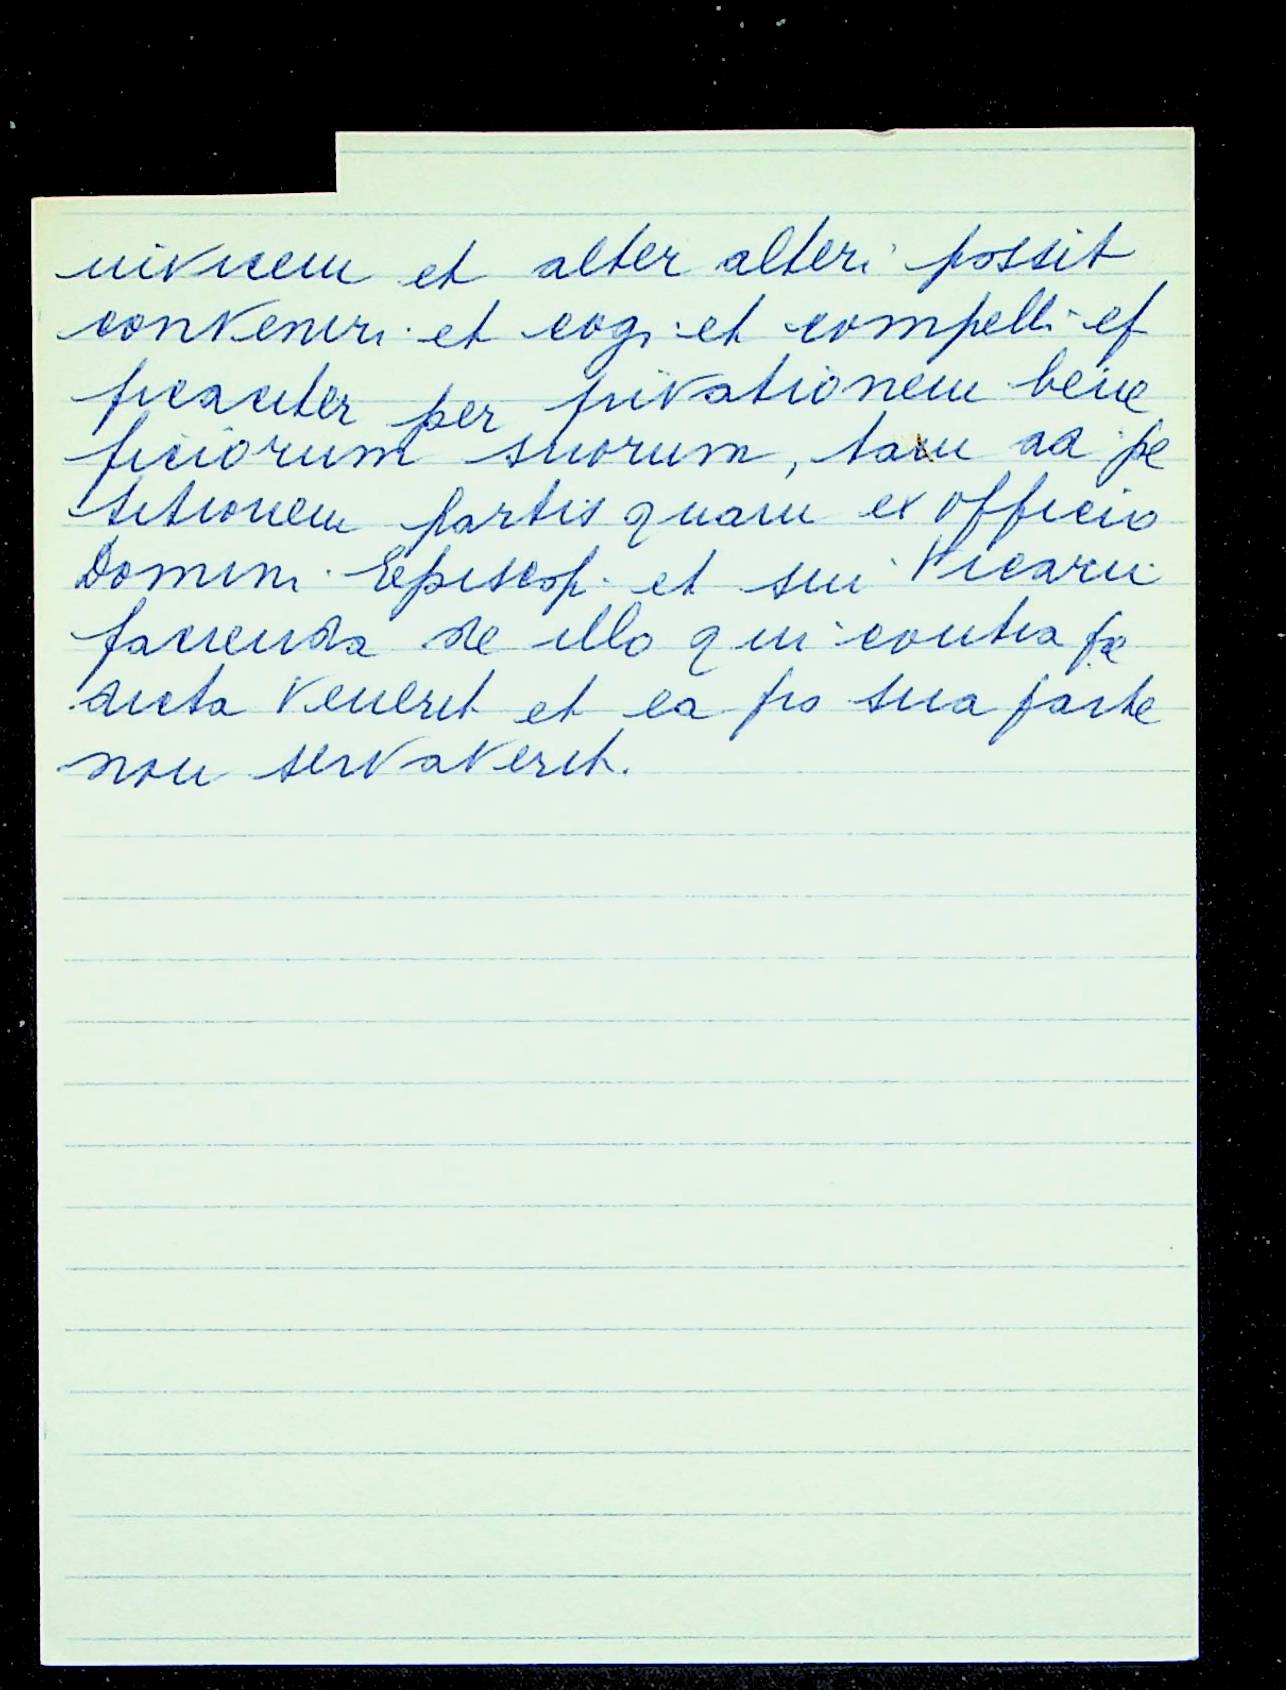 invicem et alter alteri possit
conveniri et cogi et compelli ef
ficaciter per privationem bene
ficiorum suorum, tam ad pe
titionem partis quam ex officio
Domini Episcopi et sui Vicarii
facienda de illo qui contra pre
dicta venerit et ea pro sua parte
non servaverit.